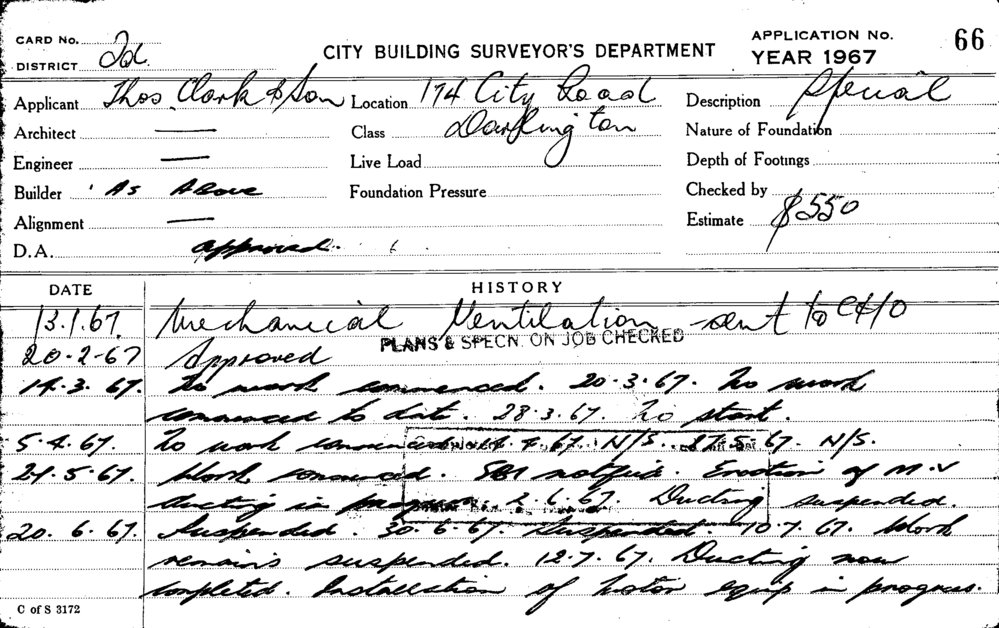 CARD No.
DISTRICT
CITY BUILDING SURVEYOR'S DEPARTMENT
APPLICATION No. 66
YEAR 1967
Applicant Thos. Clark & Son Location 174 City Road Description Special
Architect — Class Darlington Nature of Foundation
Engineer — Live Load Depth of Footings
Builder As Above Foundation Pressure Checked by
Alignment — Estimate $550
D.A. approved.
DATE HISTORY
13.1.67. Mechanical Ventilation sent to CHO
PLANS & SPECN. ON JOB CHECKED
20-2-67 Approved
14.3.67. No work commenced. 20.3.67. No work
commenced to date. 28.3.67. No start.
5.4.67. No work commenced 14.4.67. N/S. 17.5.67. N/S.
24.5.67. Work commenced. notified. Erection of M.V
ducting in progress. 2.6.67. Ducting suspended.
20.6.67. Suspended. 30.6.67. Suspended. 10.7.67. Work
remains suspended. 12.7.67. Ducting now
completed. Installation of motor equip in progress.
C of S 3172